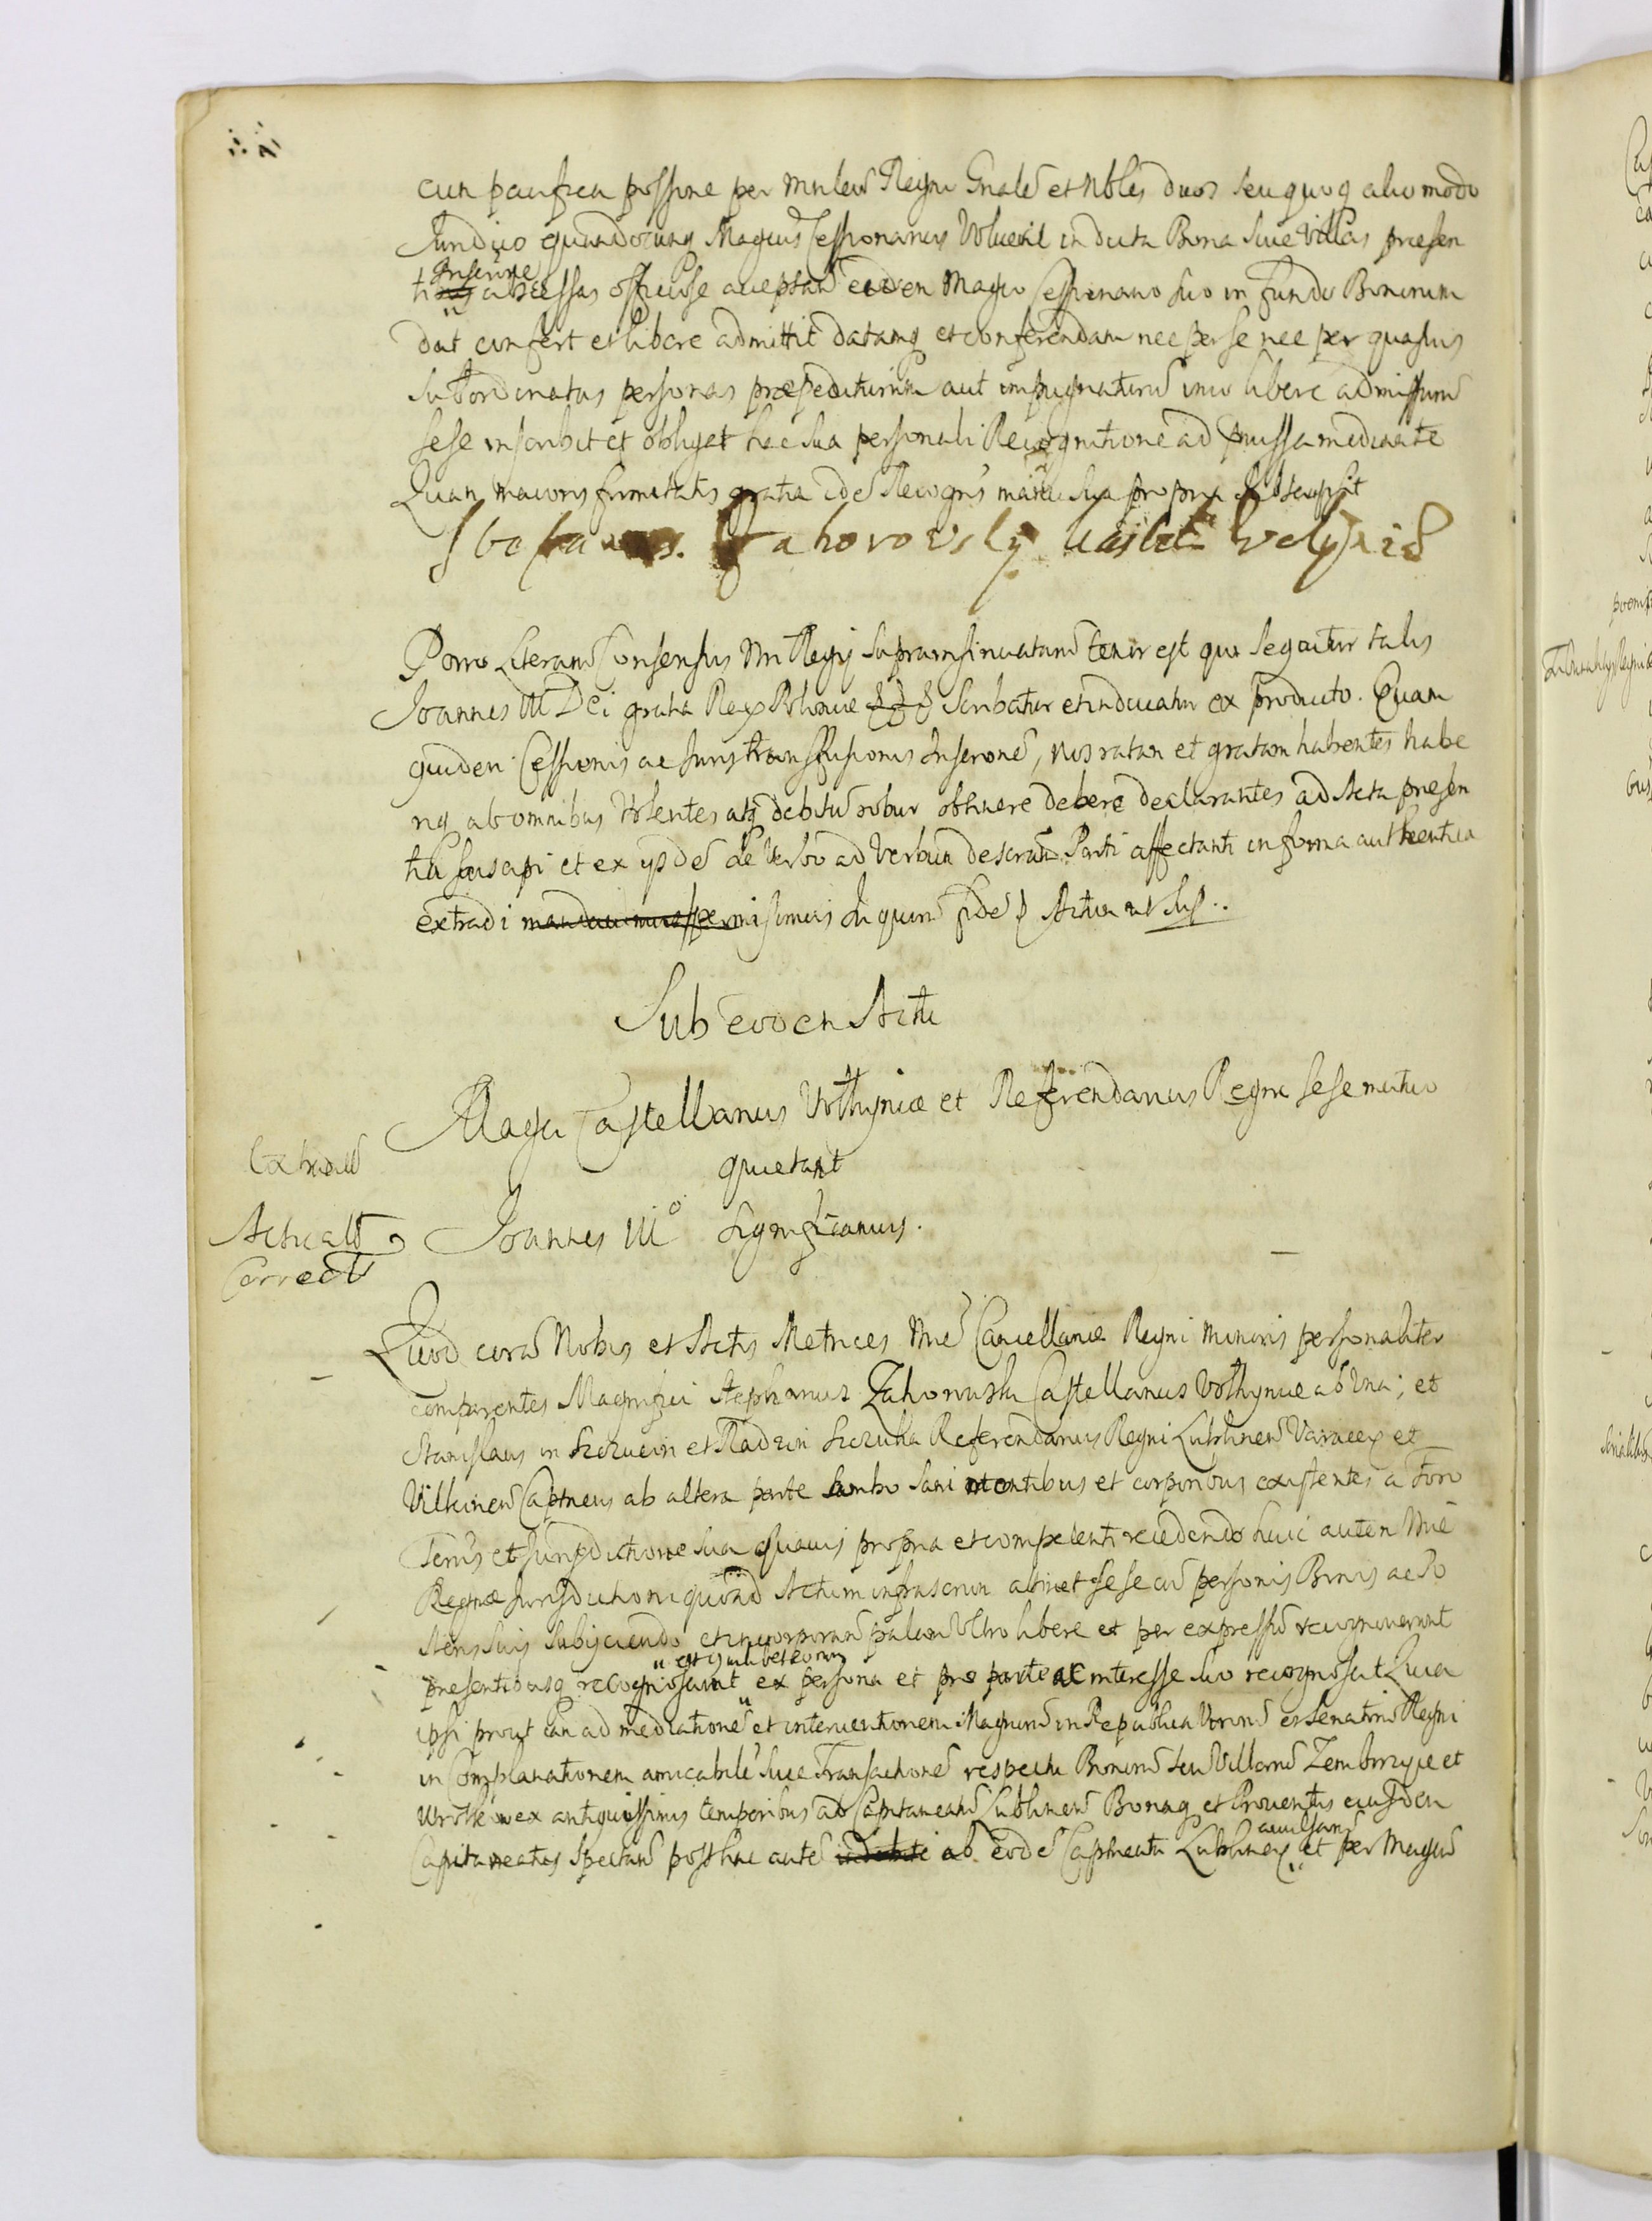 cum pacifica possione per Mnlem Regni Gnalem et Nbles duos seu quovq alio modo
Juridico quandocunq Magcus Cessionarius Voluerit in dicta Bona sive Villas præsen
ti Inscrone cessas officiose acceptand eidem Magco Cessionario suo in fundo Bonorum
dat confert et libere admittit datamq et conferendam nec per se nec per quasvis
subordinatas personas præpediturum aut impugnaturu imo libere admissuru
sese inscribit et obligat hac sua personali Recognitione ad præmissa mediante
Quam maioris firmitatis gratia ide Recogns manu sua propria subscripsit
Stefanus Zahorovsky Casht Volynis
Porro Literaru Consensus Nri Regij supra insinuataru tenor est qui sequitur talis
Joannes III Dei gratia Rex Poloniæ Scribatur et inducatur ex producto. Quam
quidem Cessionis ac Juris transfusionis Inscrone, nos ratam et gratam habentes habe
riq ab omnibus Volentes atq debitu robur obtinere debere declarantes ad Acta præsen
tia suscipi et ex ijsde de Verbo ad Verbum descrta Parti affectanti in forma authentica
extradi mandavimus permisimus In quoru fide Actum ut sup..
Sub eodem Actu
Magci Castellanus Volhyniæ et Referendarius Regni sese mutuo
quietant
Extradit
Joannes III Significamus.
Actuait
Correct
Quod coram Nobis et Actis Metrices Nræ Cancellariæ Regni Minoris personaliter
comparentes Magnifici Stephanus Zahorowski Castellanus Volhyniæ ab Una; et
Stanislaus in Szczucin et Radzin Szczuka Referendarius Regni Lublinen Varecen et
Vilkinen Captneus ab altera parte Ambo sani mentibus et corporibus existentes a foro
Terris et Jurisdictione sua quavis propria et competenti recedendo huic autem Nræ
Regiæ Jurisdictioni quoad Actum infrascrum attinet sese cu personis Bonis ac Po
steris suis subijciendo et incorporando palam Ultro libere et per expressu recognoverunt
præsentibusq recognoscunt et quilibet eorum ex persona et pro parte ac interesse suo recognoscit Quia
ipsi prout iam ad mediatione et interventionem Magnoru in Republica Viroru et Senatoru Regni
in Complanationem amicabile sive Transactione respectu Bonoru seu Villaru Zemborzyce et
Wrotkow ex antiquissimis temporibus ad Capitaneatu Lublinen Bonaq et Proventus eiusdem
Capitaneatus spectan posthac aute indebite ab eode Captneatu Lublinen avulsaru et per Magcu